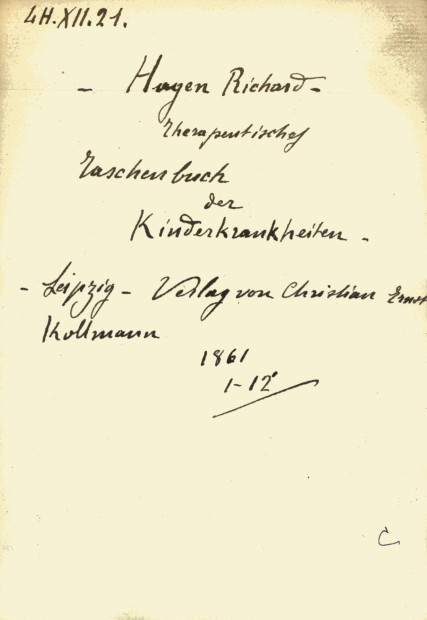 4H.XII.21.
- Hagen Richard -
Therapeutisches
Taschenbuch
der
Kinderkrankheiten -
- Leipzig - Verlag von Christian Ernst
Kollmann
1861
1-12°
C